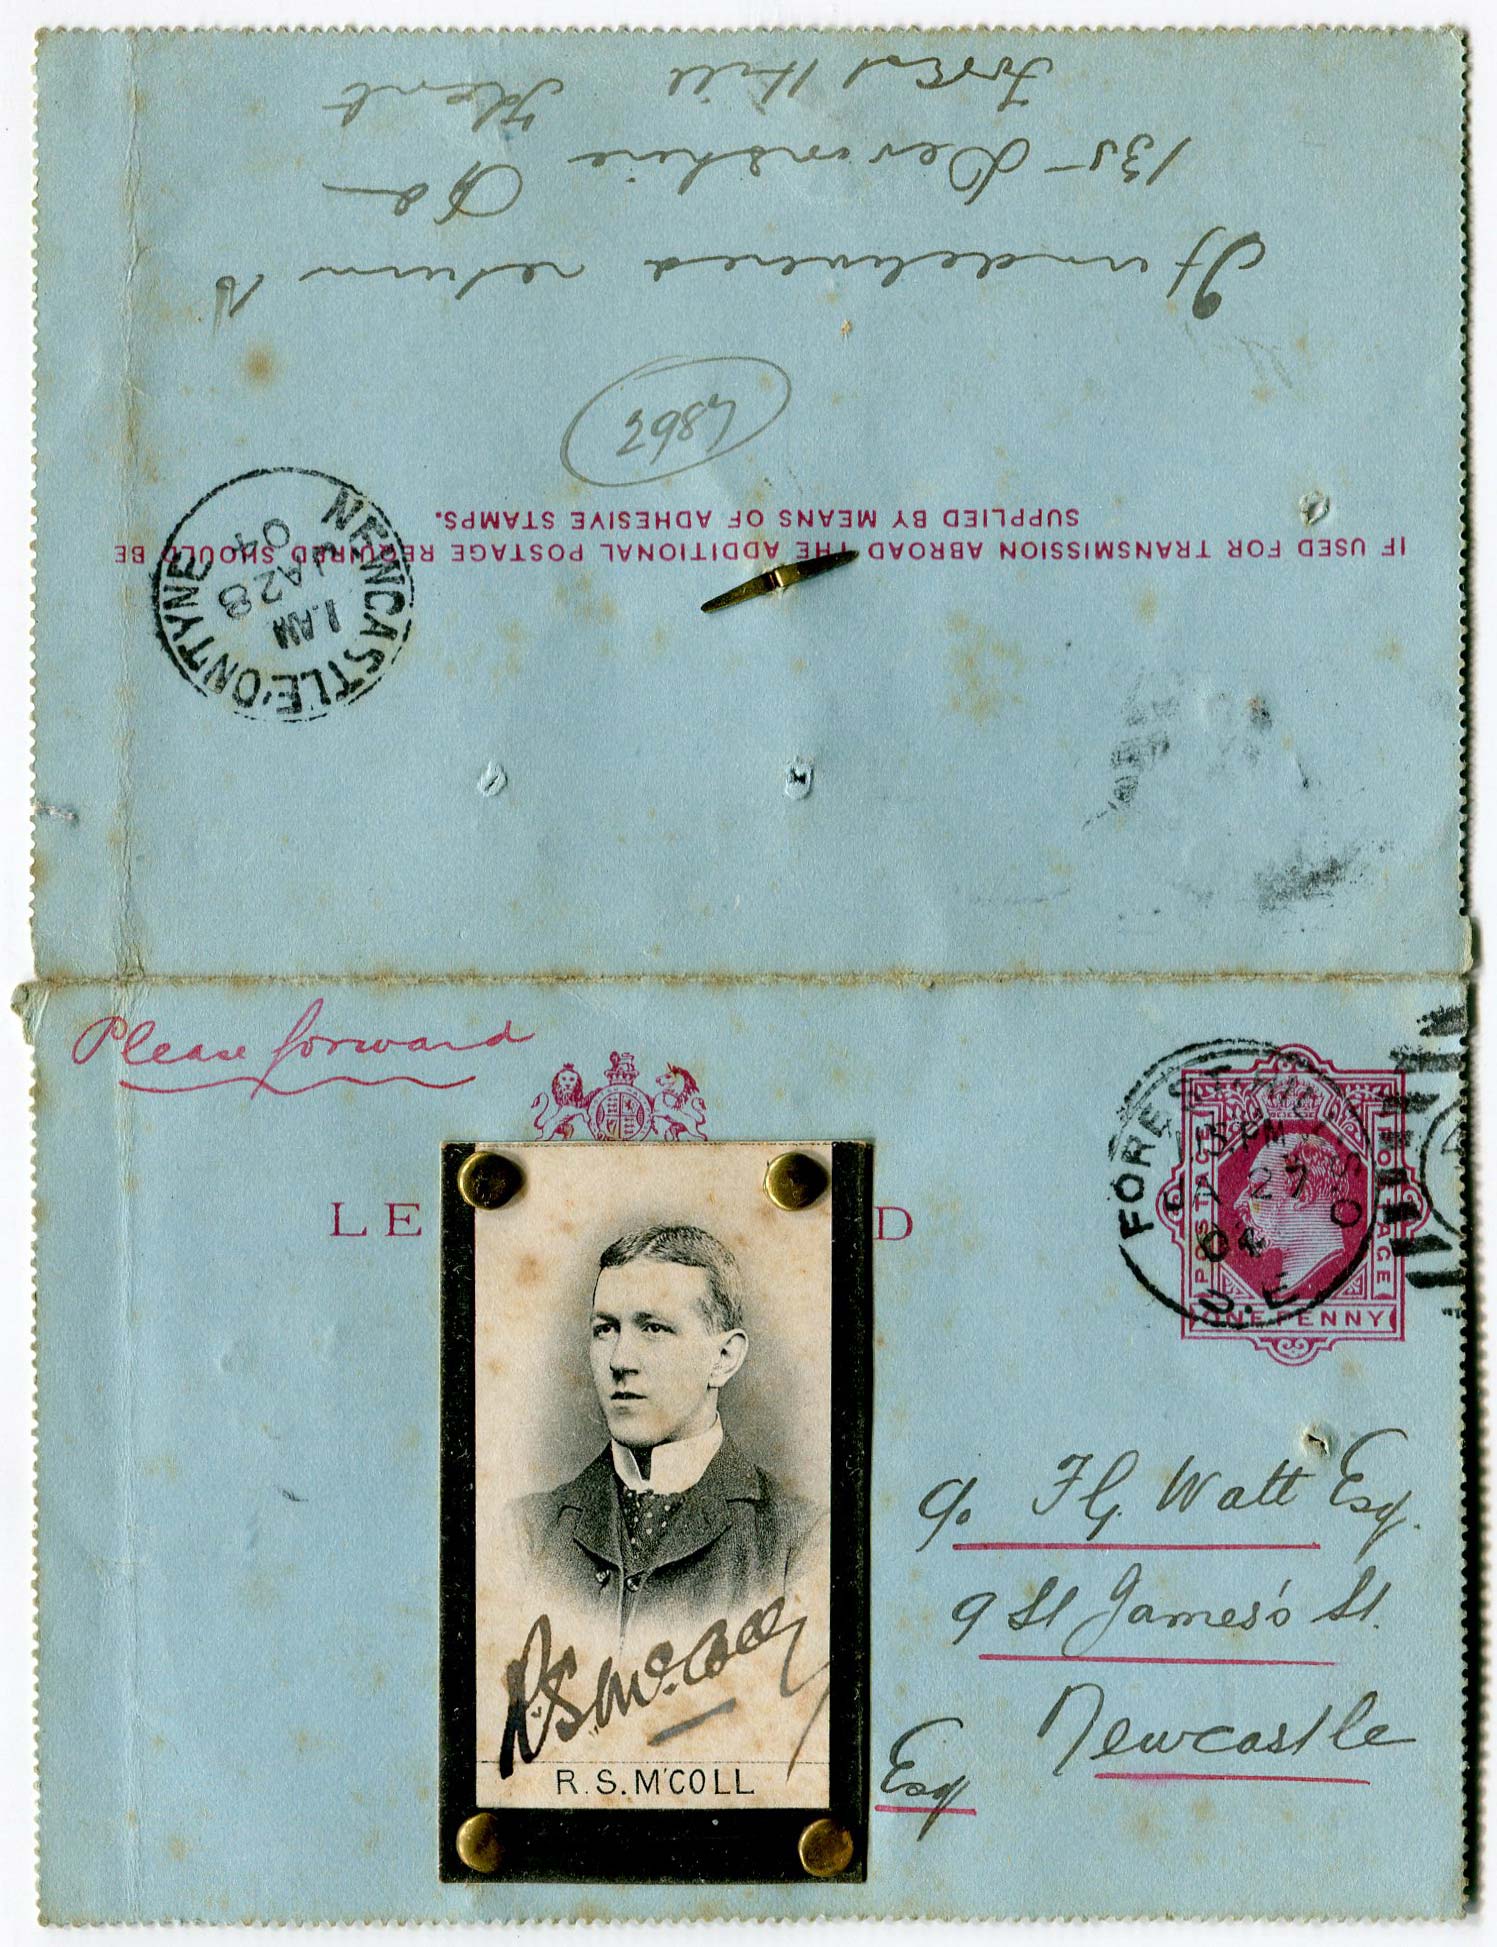 Forest Hill Kent
135 Devonshire Rd
If undelivered return to
2987
SUPPLIED BY MEANS OF ADHESIVE STAMPS.
IF USED FOR TRANSMISSION ABROAD THE ADDITIONAL POSTAGE REQUIRED SHOULD BE
NEWCASTLE·ON·TYNE
1.AM
JA28
04
Please forward
LE
D
FOREST HILL S.O
5.PM
27
04
POSTAGE
POSTAGE
ONE PENNY
c/o F G Watt Esq.
9 St James's St.
Newcastle
Esq
R.S. McColl
R. S. M'COLL